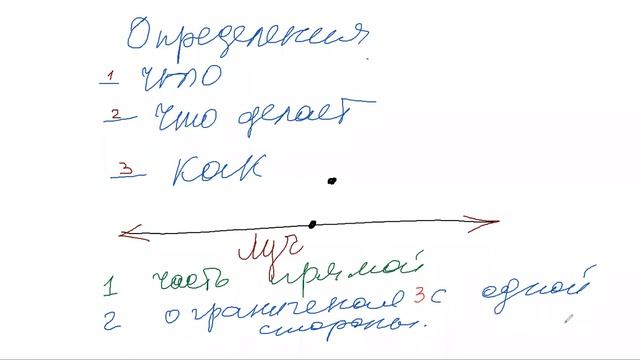 Определения
1 что
2 что делает
3 как
луч
1 часть прямой
2 ограниченая 3 с одной
стороны.